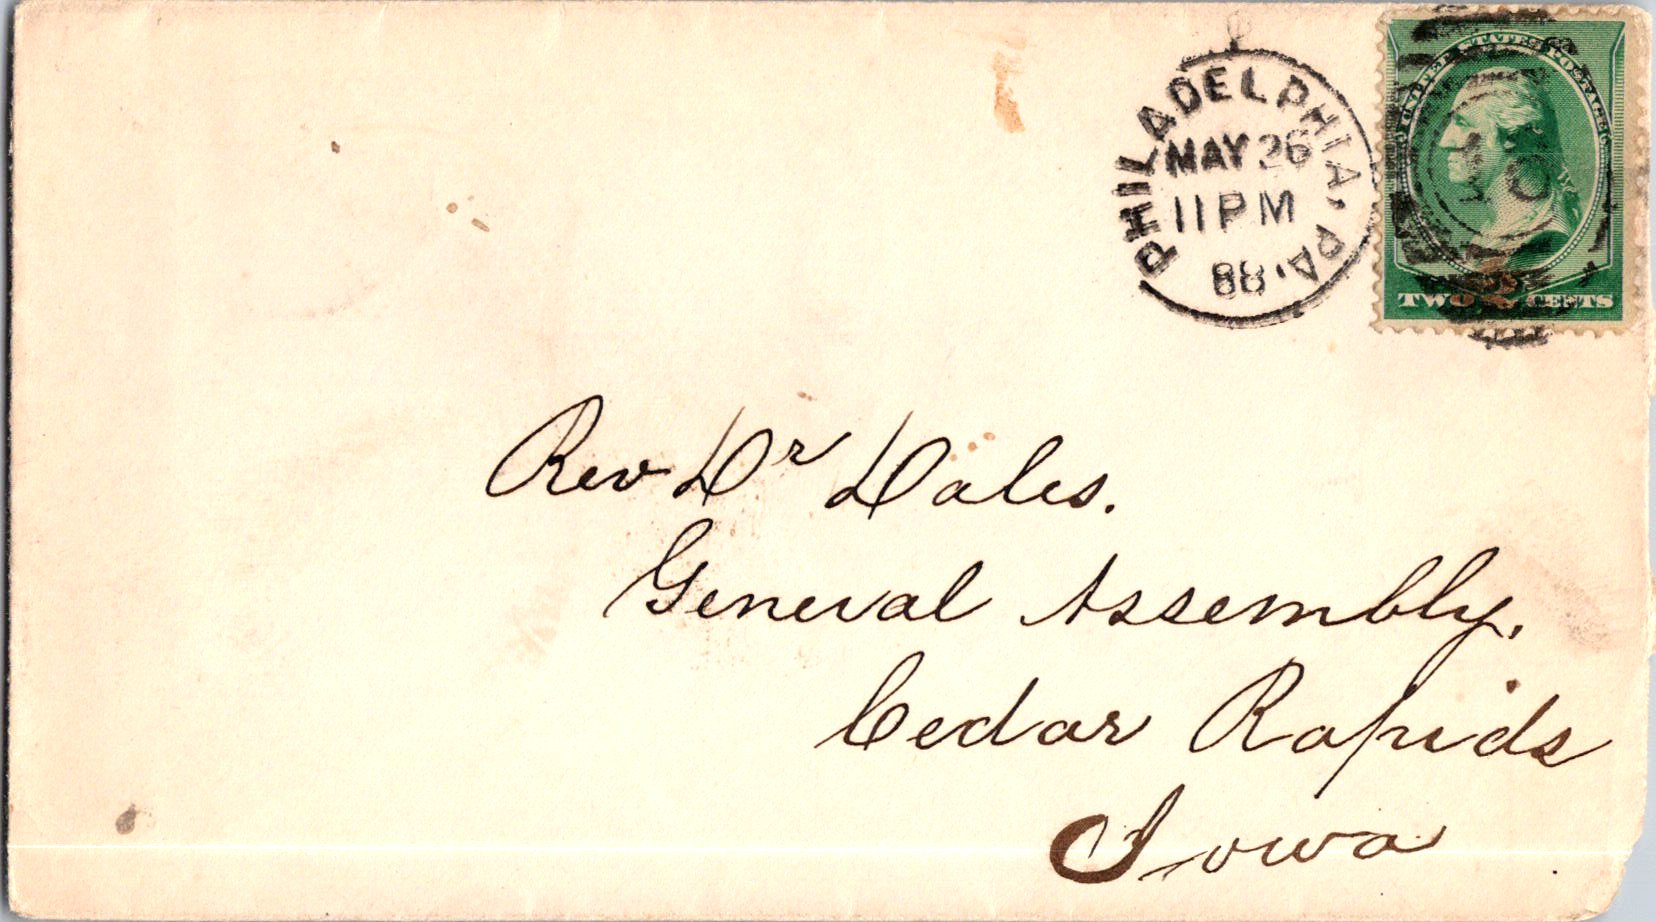 PHILADELPHIA, PA.
MAY 26
11 PM
88
UNITED STATES POSTAGE
TWO 2 CENTS
Rev Dr Dales.
General Assembly.
Cedar Rapids
Iowa